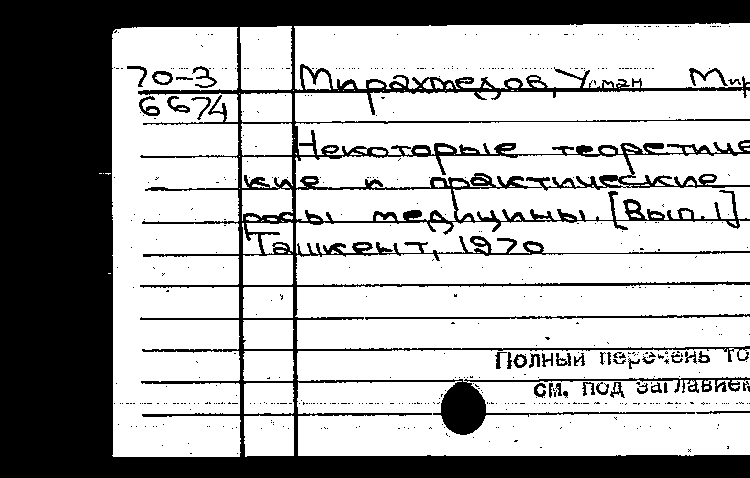 70-3
6674
Мирахмедов, Усман Мир
Некоторые теоретиче
кие и практические
росы медицины. [Вып. 1]
Ташкент, 1970
Полный перечень то
см. под заглавием